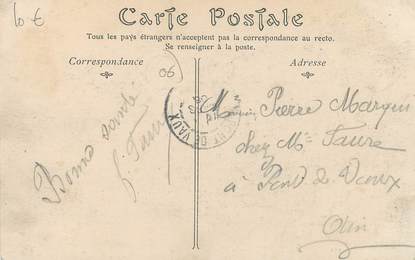 10 €
Carte Postale
Tous les pays étrangers n'acceptent pas la correspondance au recto.
Se renseigner à la poste.
Correspondance
Adresse
06
Bonne santé
Faure
M. Pierre Marguin
chez Mme Faure
à Pont de Vaux
Ain
DE VAUX